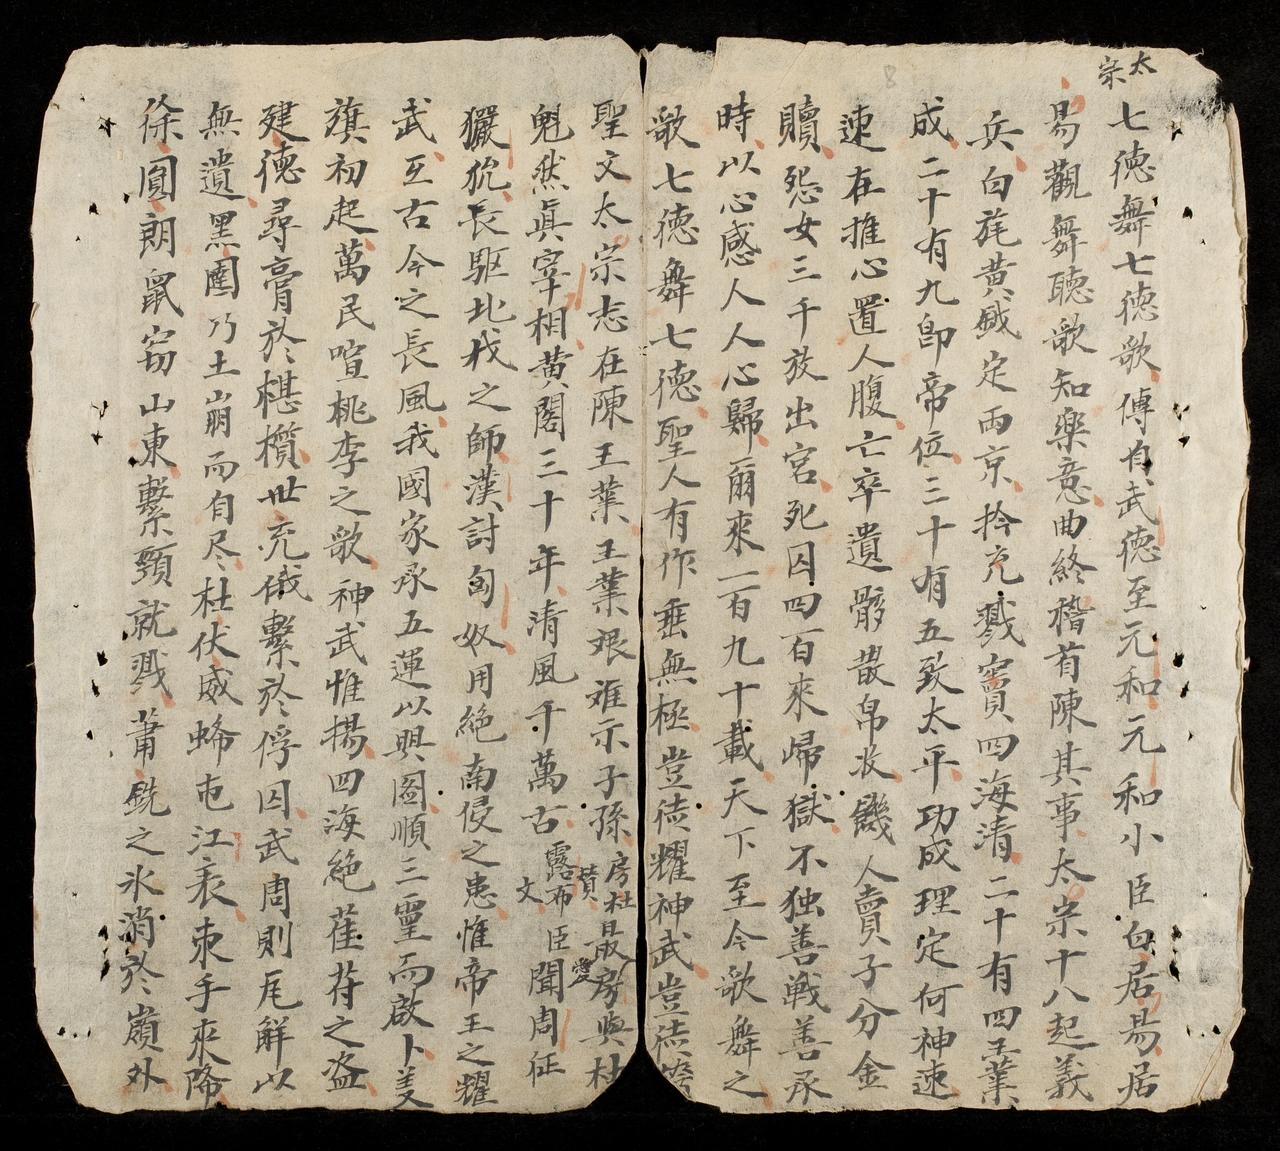 太宗
七德舞七德歌傳自武德至元和元和小臣白居易居
易觀舞聽歌知樂意曲終稽首陳其事太宗十八起義
兵白旄黃鉞定兩京擒充戮竇四海清二十有四王業
成二十有九卽帝位三十有五致太平功成理定何神速
速在推心置人腹亡卒遺骸散帛收饑人賣子分金
贖怨女三千放出宮死囚四百來歸獄不独善戰善承
時以心感人人心歸爾來一百九十載天下至今歌舞之
歌七德舞七德聖人有作垂無極豈徒耀神武豈徒誇
聖文太宗志在陳王業王業艱难示子孫房杜賛最愛房與杜
魁然眞宰相黃閣三十年清風千萬古露布文臣聞周征
玁狁長駆北伐之師漢討匈奴用絕南侵之患惟帝王之耀
武亙古今之長風我國家承五運以興圖順三靈而啟卜義
旗初起萬民喧桃李之歌神武惟揚四海絕萑苻之盜
建德尋膏於椹櫍世充俄繫於俘囚武周則瓦解以
無遺黑闥乃土崩而自尽杜伏威蜂屯江表束手來降
徐圓朗鼠窃山東繫頸就戮蕭銑之氷消於嶺外